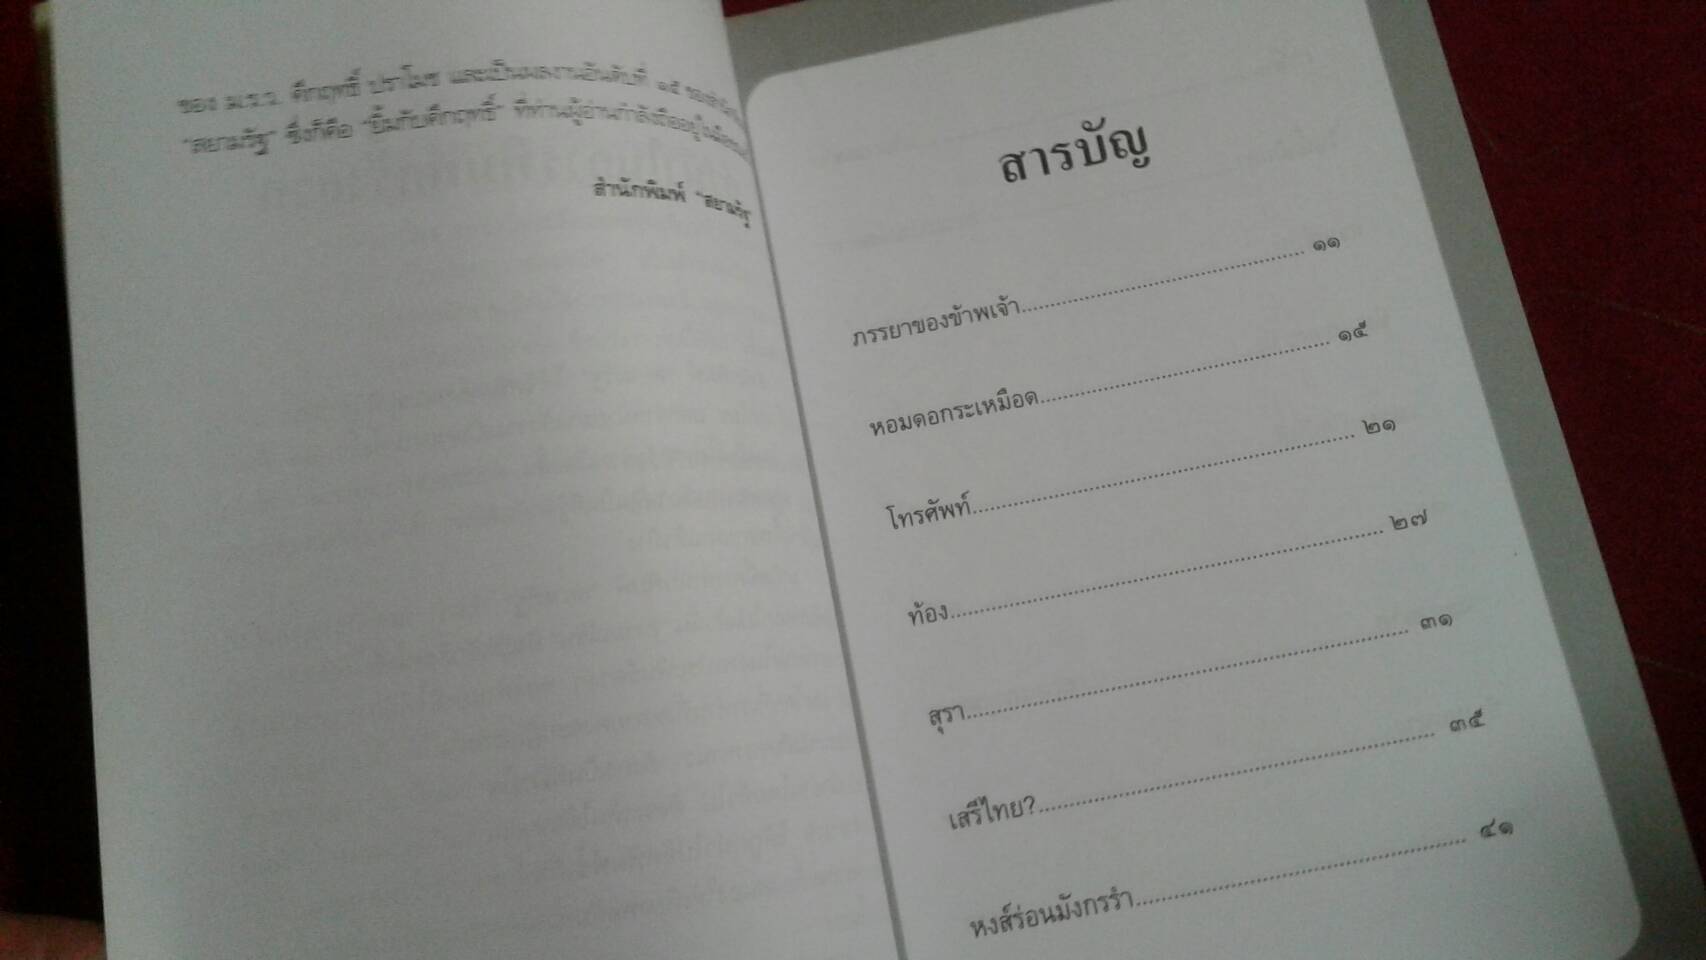 ของ ม.ร.ว. คึกฤทธิ์ ปราโมช และเป็นผลงานอันดับที่ ๑๕ ของสำนักพิมพ์
"สยามรัฐ" ซึ่งก็คือ "ยิ้มกับคึกฤทธิ์" ที่ท่านผู้อ่านกำลังถืออยู่ในมือขณะ
สำนักพิมพ์ "สยามรัฐ
สารบัญ
ภรรยาของข้าพเจ้า.......... ๑๑
หอมดอกระเหมือด.......... ๑๕
โทรศัพท์.......... ๒๑
ท้อง.......... ๒๗
สุรา.......... ๓๑
เสรีไทย?.......... ๓๕
หงส์ร่อนมังกรรำ.......... ๔๑